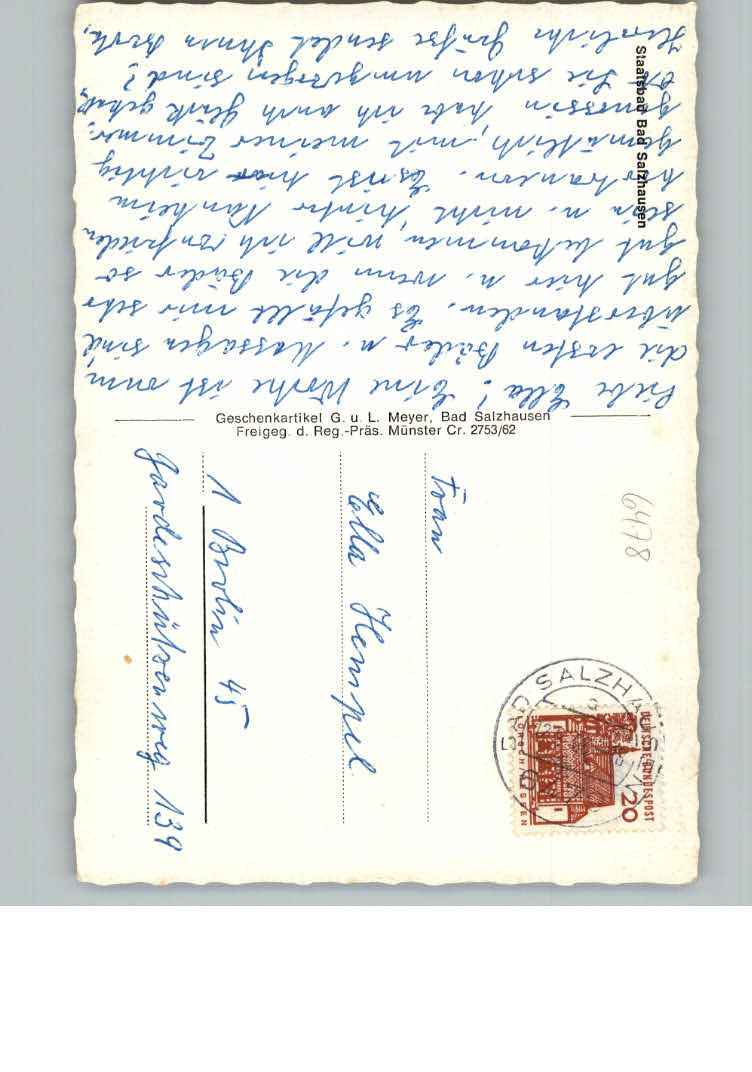 Staatsbad Bad Salzhausen
Liebe Ella! Eine Woche ist um,
die ersten Bäder u. Massagen sind
überstanden. Es gefällt mir sehr
gut hier u. wenn die Bäder so
gut bekommen, will ich zufrieden
sein u. nicht hinter Nauheim
hertrauern. Es ist hier richtig
gemütlich, mit meiner Zimmer-
genossin habe ich auch Glück gehabt,
Ob Sie schon umgezogen sind?
Herzliche Grüße sendet Ihnen
Geschenkartikel G. u. L. Meyer, Bad Salzhausen
Freigeg. d. Reg.-Präs. Münster Cr. 2753/62
6478
BAD SALZHAUSEN
DEUTSCHE BUNDESPOST
20
Frau
Ella Hempel
1 Berlin 45
Gardeschützenweg 139